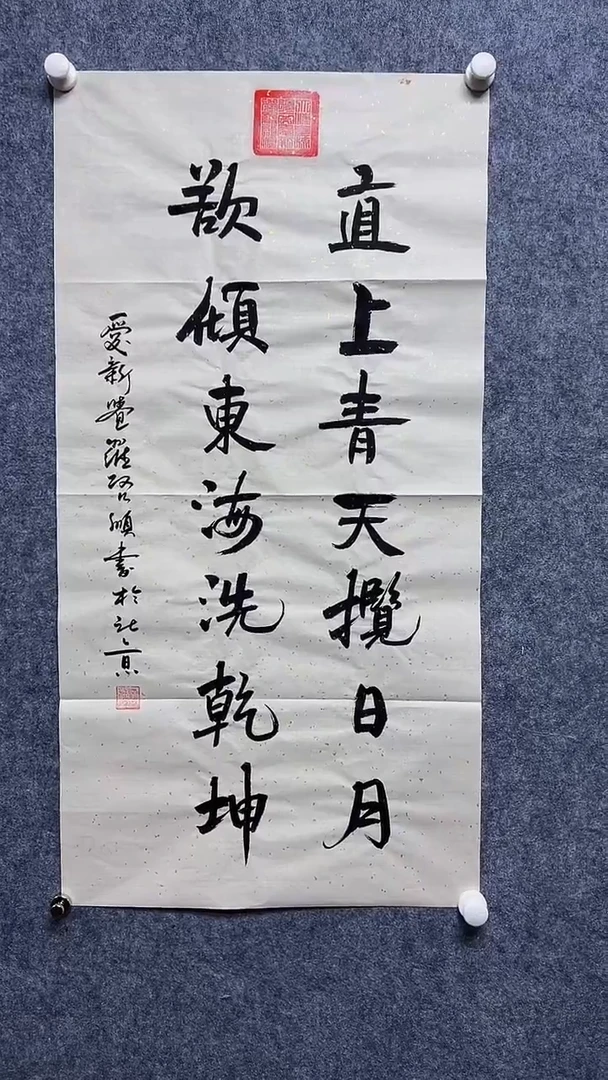 直上青天攬日月
欲傾東海洗乾坤
愛新覺羅啓書於北京